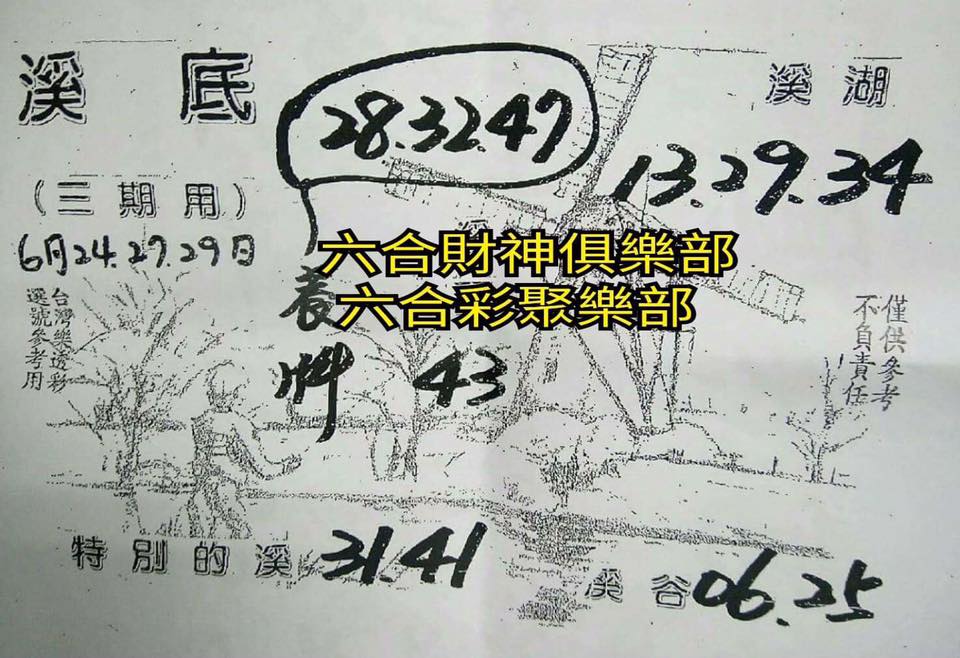 溪底
28.32.47
溪湖
13.29.34
(三期用)
6月24.27.29日
溪
六合財神俱樂部
六合彩聚樂部
台灣樂透彩
選號參考用
僅供參考
不負責任
養
牌 43
特別的溪 31.41
溪谷 06.25